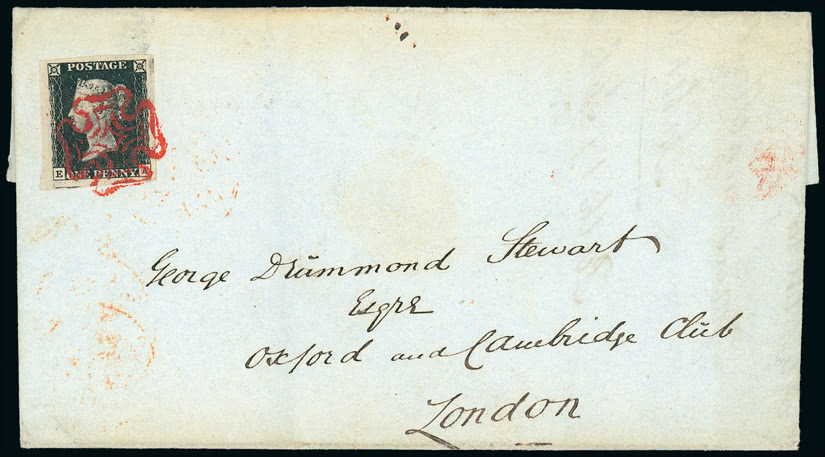 POSTAGE
E ONE PENNY
George Drummond Stewart
Esqre
Oxford and Cambridge Club
London